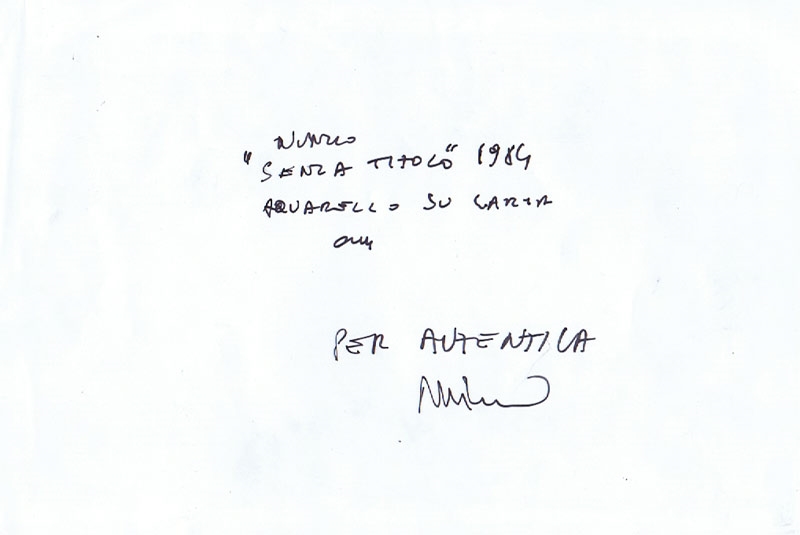 NUNZIO
"SENZA TITOLO" 1984
AQUARELLO SU CARTA
PER AUTENTICA